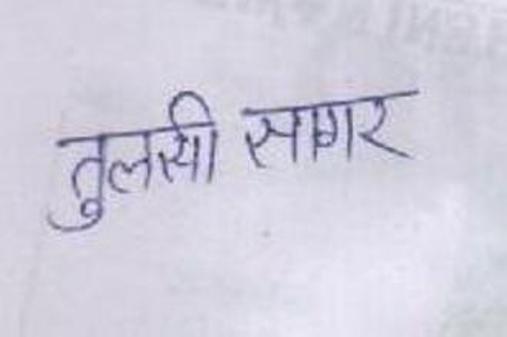 तुलसी सागर